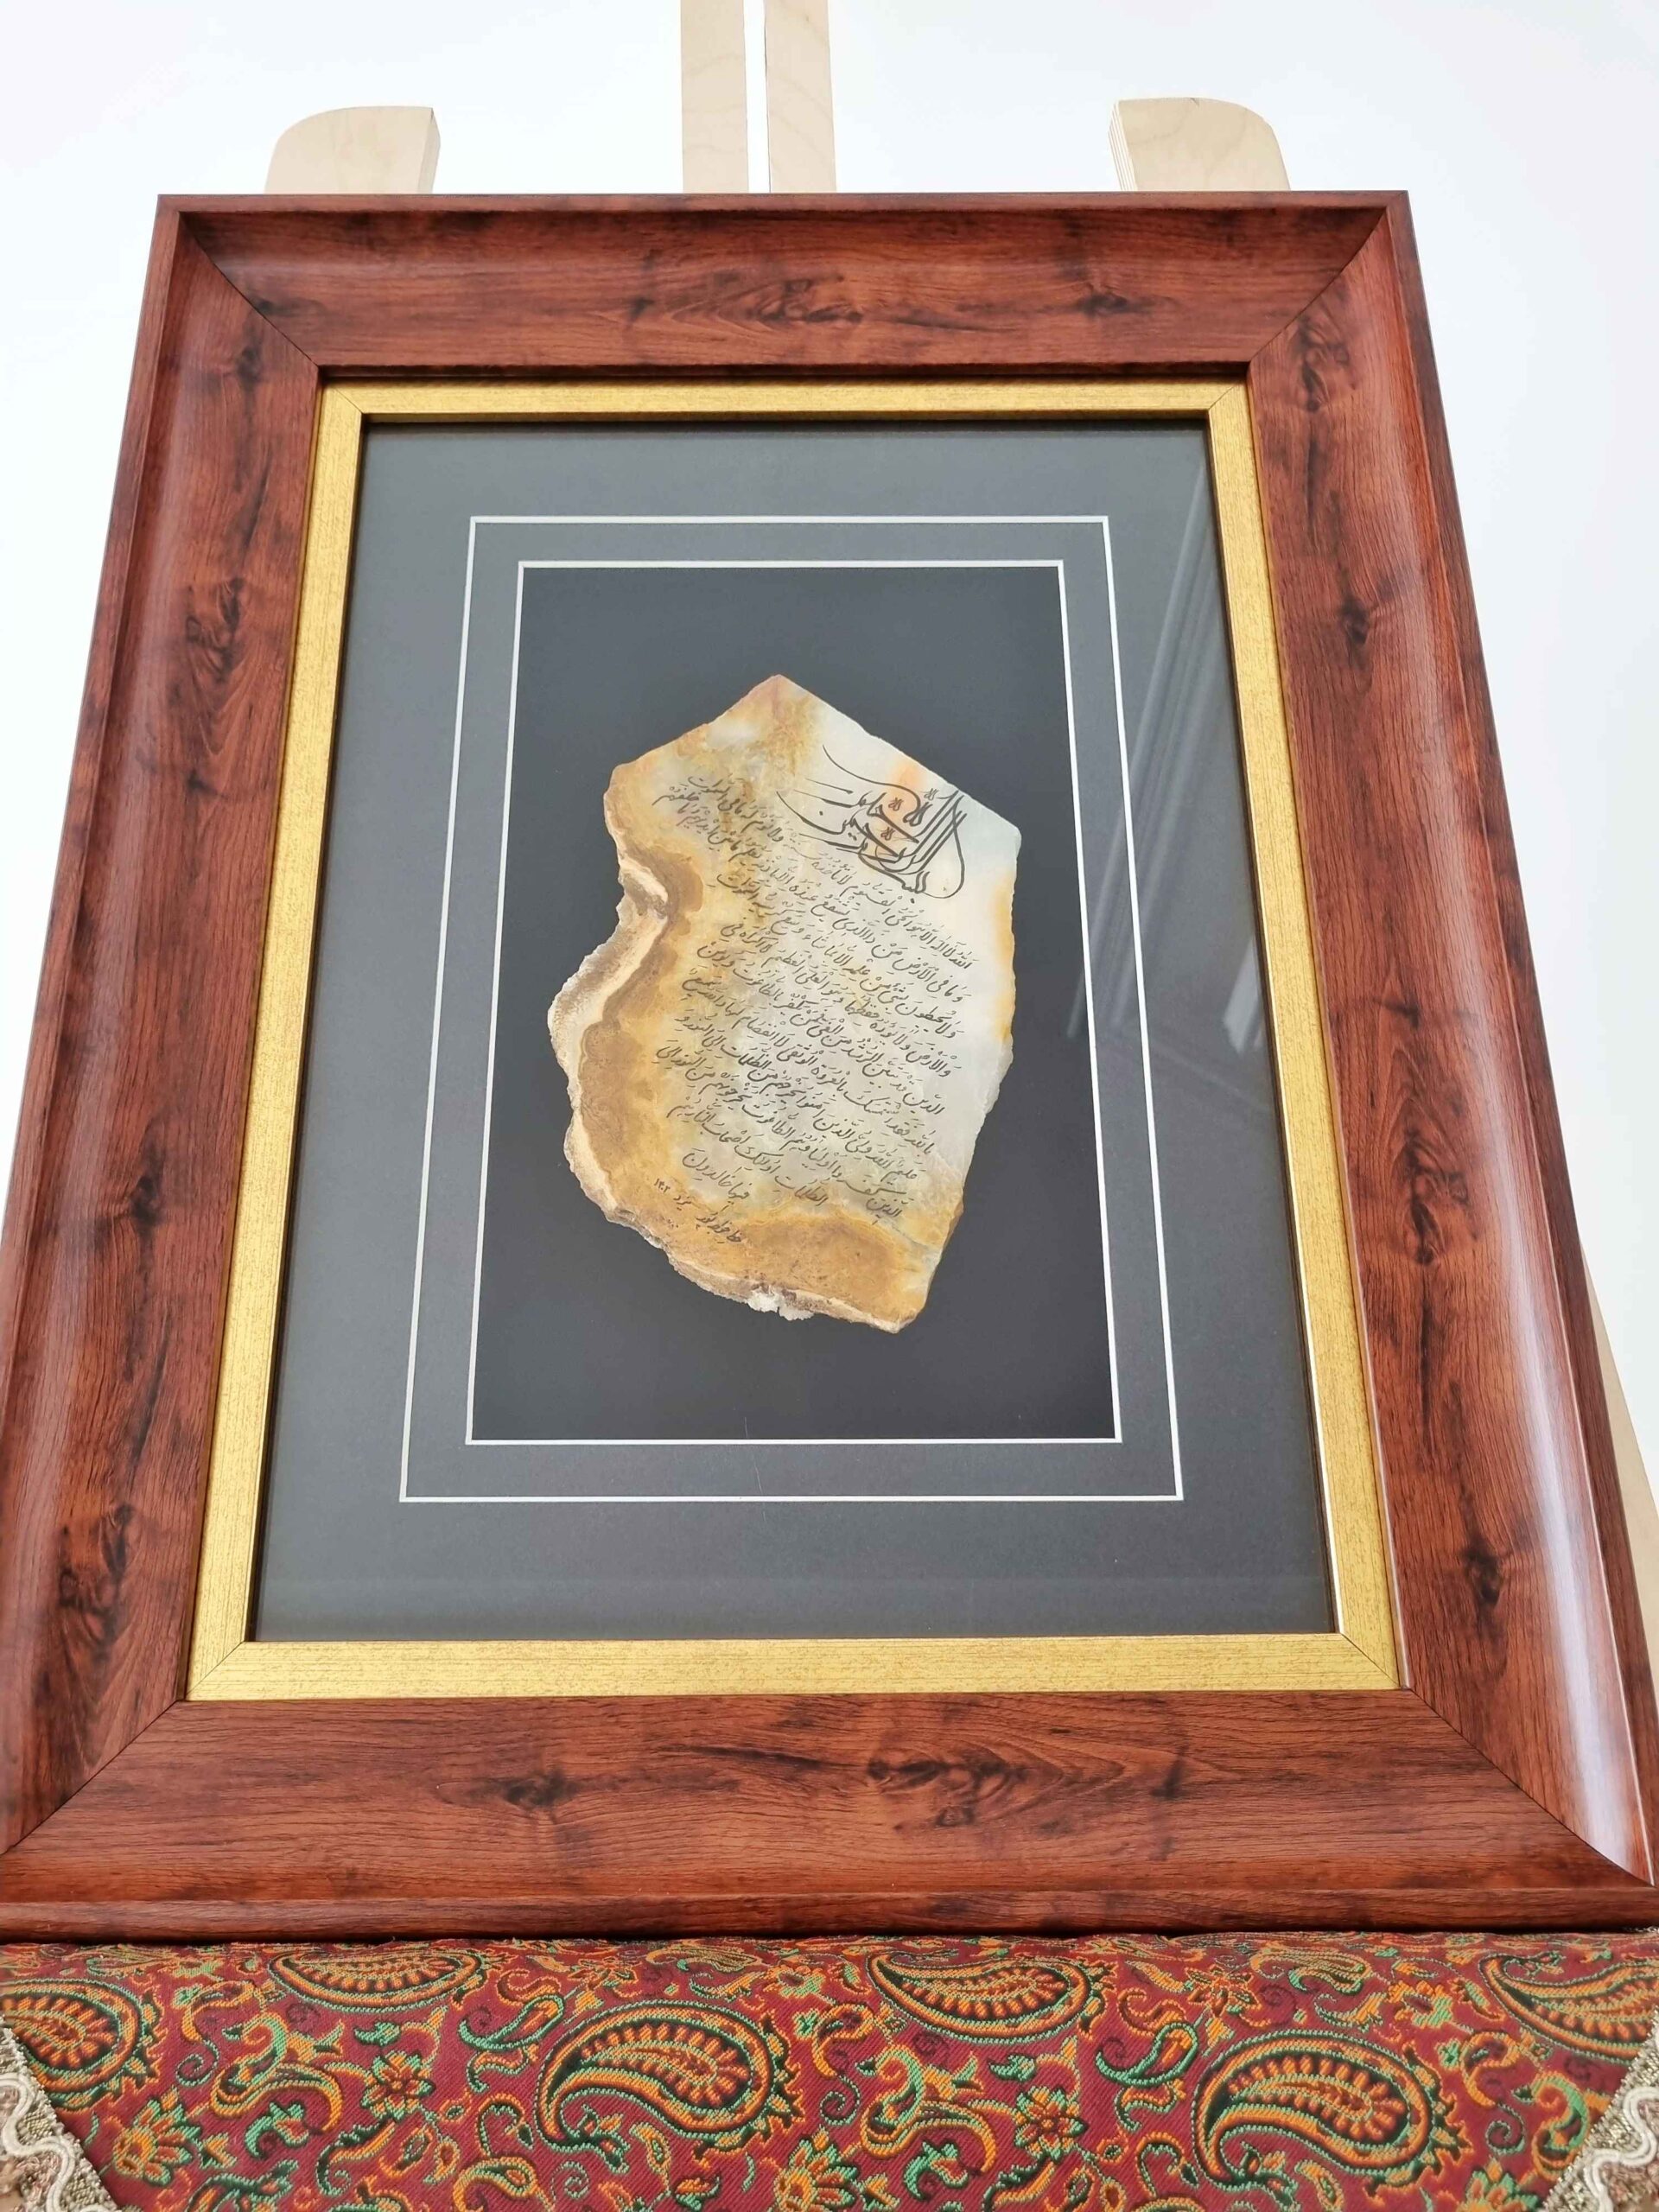 بسم الله الرحمن الرحیم
الله لا اله الا هو الحی القیوم لا تأخذه سنة ولا نوم له ما فی السموات
و ما فی الارض من ذا الذی یشفع عنده الا باذنه یعلم ما بین ایدیهم و ما خلفهم
ولا یحیطون بشیء من علمه الا بما شاء وسع کرسیه السموات
والارض ولا یؤده حفظهما و هو العلی العظیم لا اکراه فی
الدین قد تبین الرشد من الغی فمن یکفر بالطاغوت و یؤمن
بالله فقد استمسک بالعروة الوثقی لا انفصام لها والله سمیع
علیم الله ولی الذین آمنوا یخرجهم من الظلمات الی النور و
الذین کفروا اولیاؤهم الطاغوت یخرجونهم من النور الی
الظلمات اولئک اصحاب النار هم
فیها خالدون